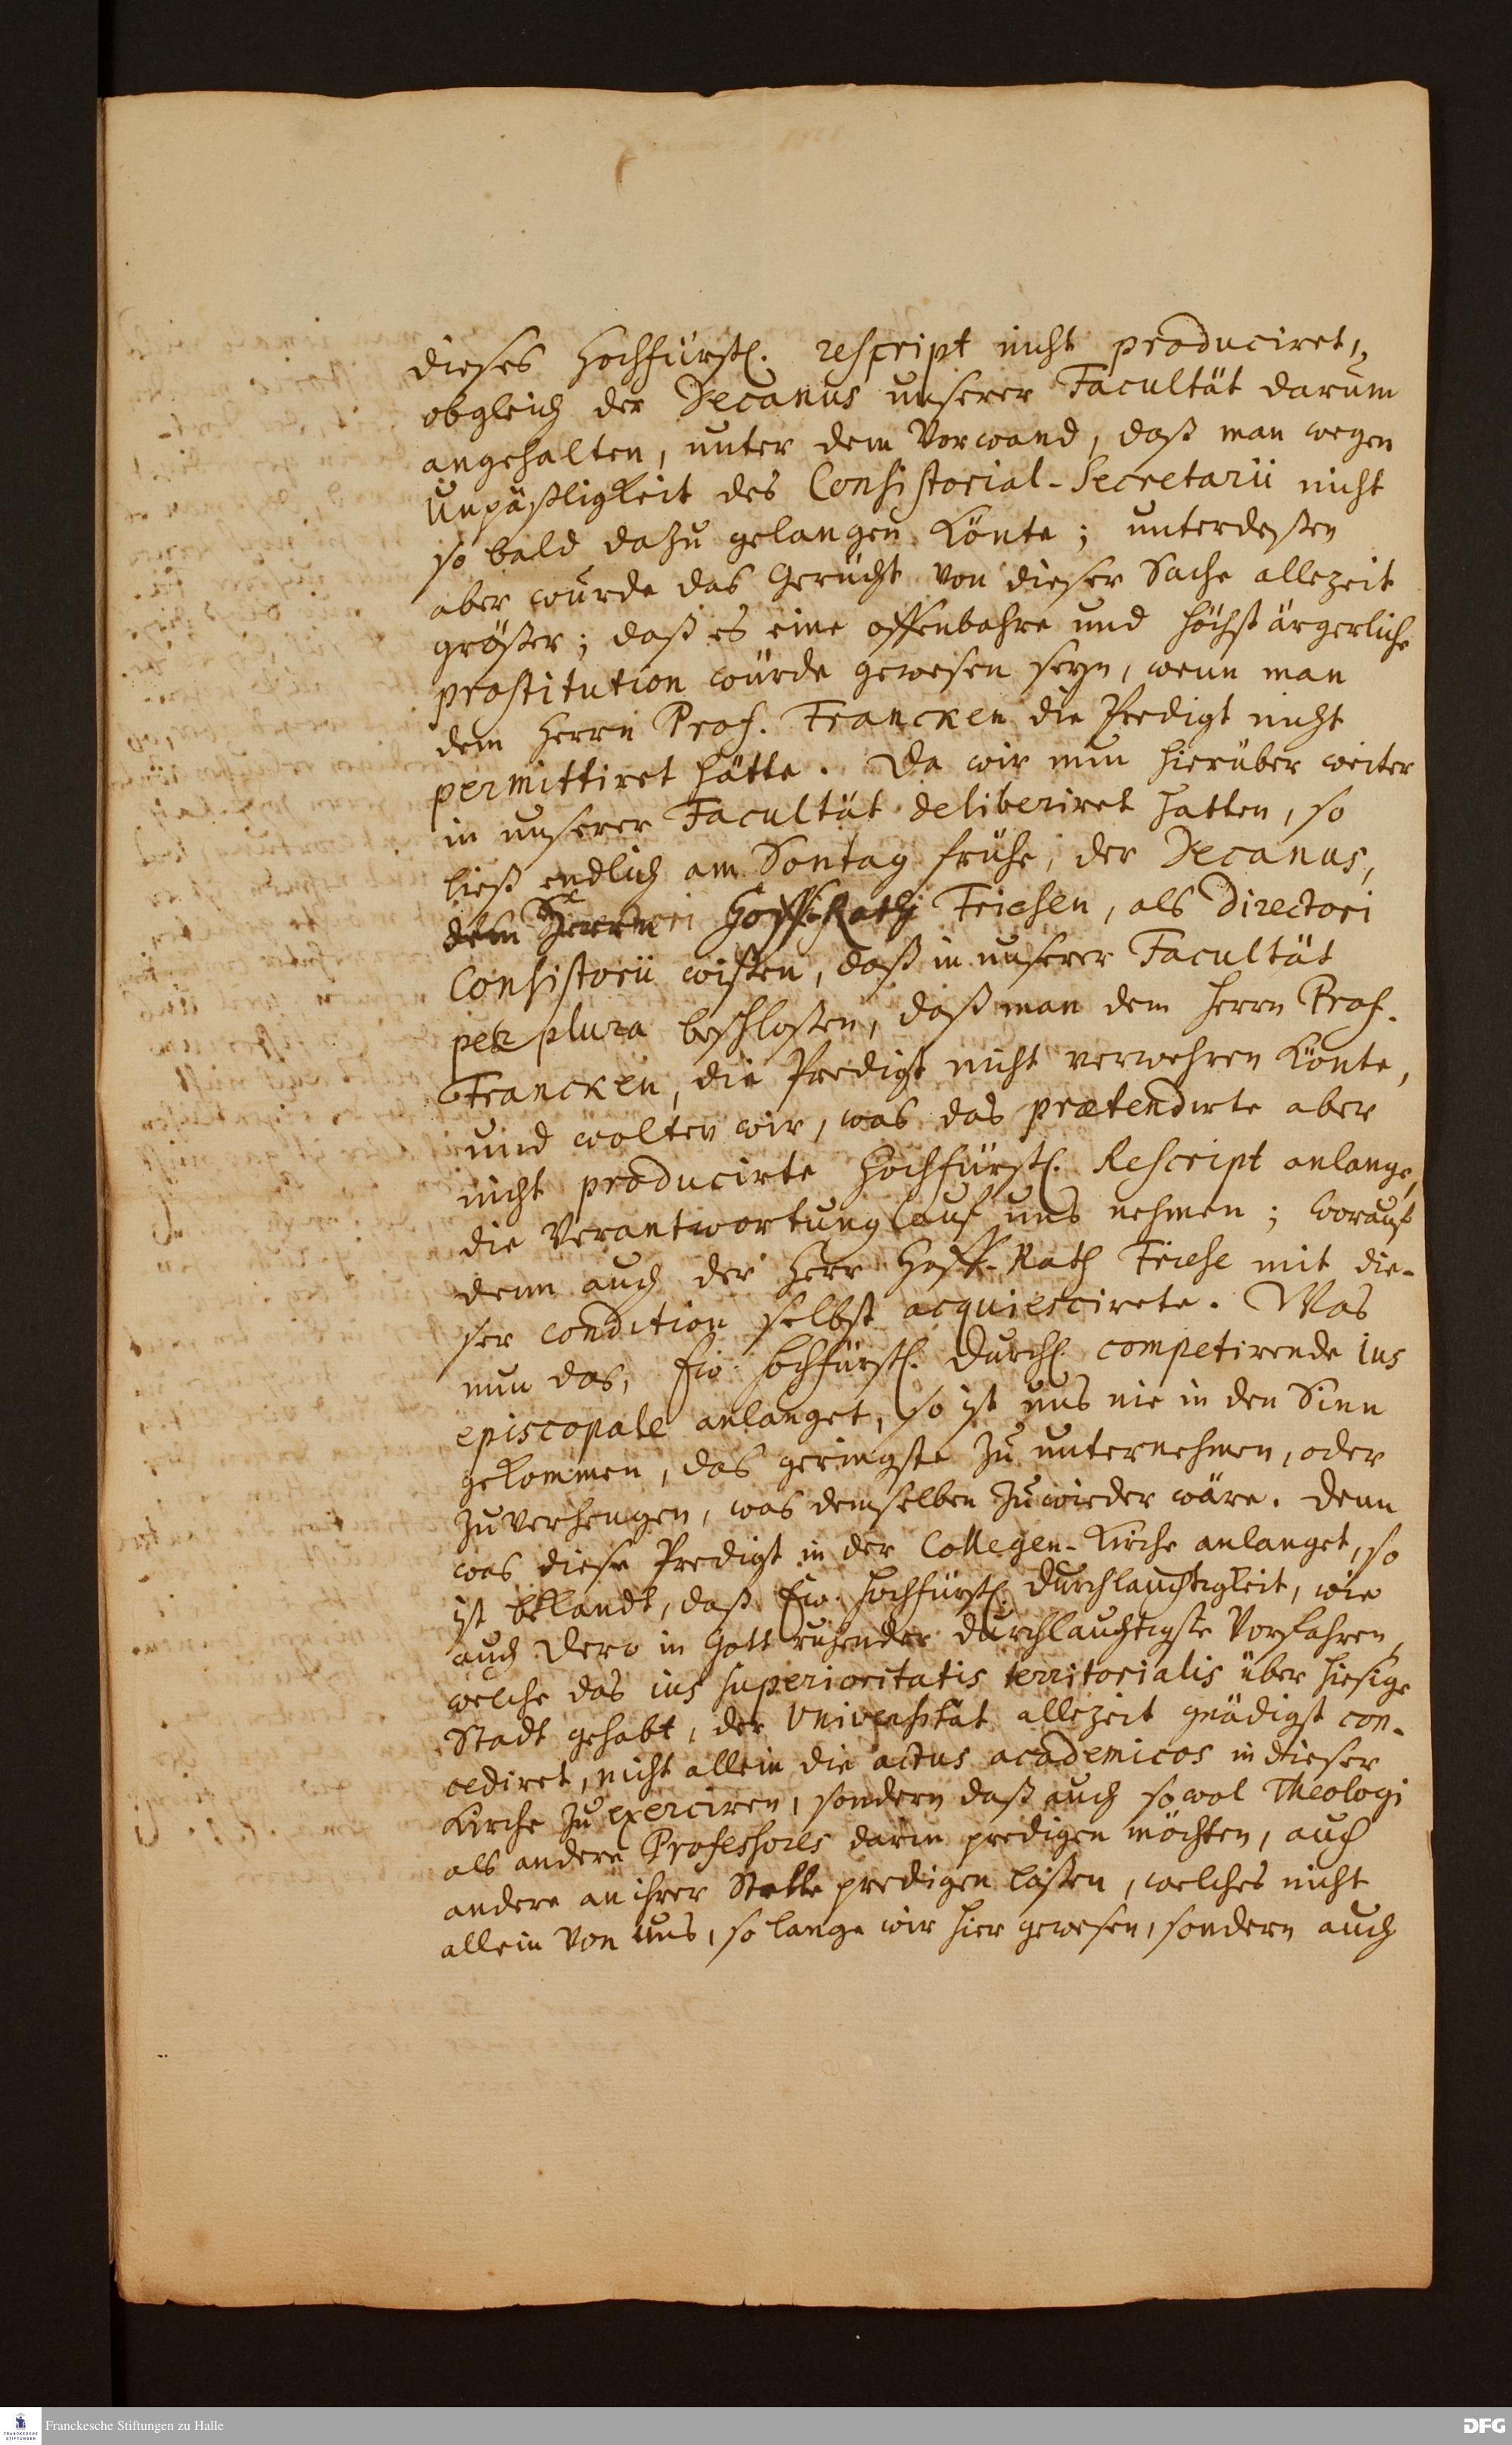 dieses Hochfürstl. rescript nicht produciret,
obgleich der Decanus unserer Facultät darum
angehalten, unter dem Vorwand, daß man wegen
Unpäßligkeit des Consistorial-Secretarii nicht
so bald dazu gelangen könte; unterdeßen
aber wurde das Gerücht von dieser Sache allezeit
größer; daß es eine offenbahre und höchst ärgerliche
prostitution würde gewesen seyn, wenn man
dem Herrn Prof. Francken die Predigt nicht
permittiret hätte. Da wir nun hierüber weiter
in unserer Facultät deliberiret hatten, so
ließ endlich am Sontag frühe, der Decanus,
dem Hoff-Rath Friesen, als Directori
Consistorii wißen, daß in unserer Facultät
per plura beschloßen, daß man dem Herrn Prof.
Francken, die Predigt nicht verwehren könte,
und wolten wir, was das prætendirte aber
nicht producirte Hochfürstl. Rescript anlange,
die Verantwortung auf uns nehmen; worauf
denn auch der Herr Hoff-Rath Friese mit die-
ser condition selbst acquiescirete. Was
nun das, Ew. Hochfürstl. Durchl. competirende ius
episcopale anlanget, so ist uns nie in den Sinn
gekommen, das geringste zu unternehmen, oder
zuverhengen, was demselben zuwieder wäre. Denn
was diese Predigt in der Collegen-Kirche anlanget, so
ist bekandt, daß Ew. Hochfürstl. Durchlauchtigkeit, wie
auch Dero in Gott ruhender Durchlauchtigste Vorfahren,
welche das ius superioritatis territorialis über hiesige
Stadt gehabt, der Universität allezeit gnädigst con-
cediret, nicht allein die actus academicos in dieser
Kirche zu exerciren, sondern daß auch so wol Theologi
als andere Professores darin predigen möchten, auch
andere an ihrer Stelle predigen laßen, welches nicht
allein von uns, so lange wir hier gewesen, sondern auch
Franckesche Stiftungen zu Halle
DFG